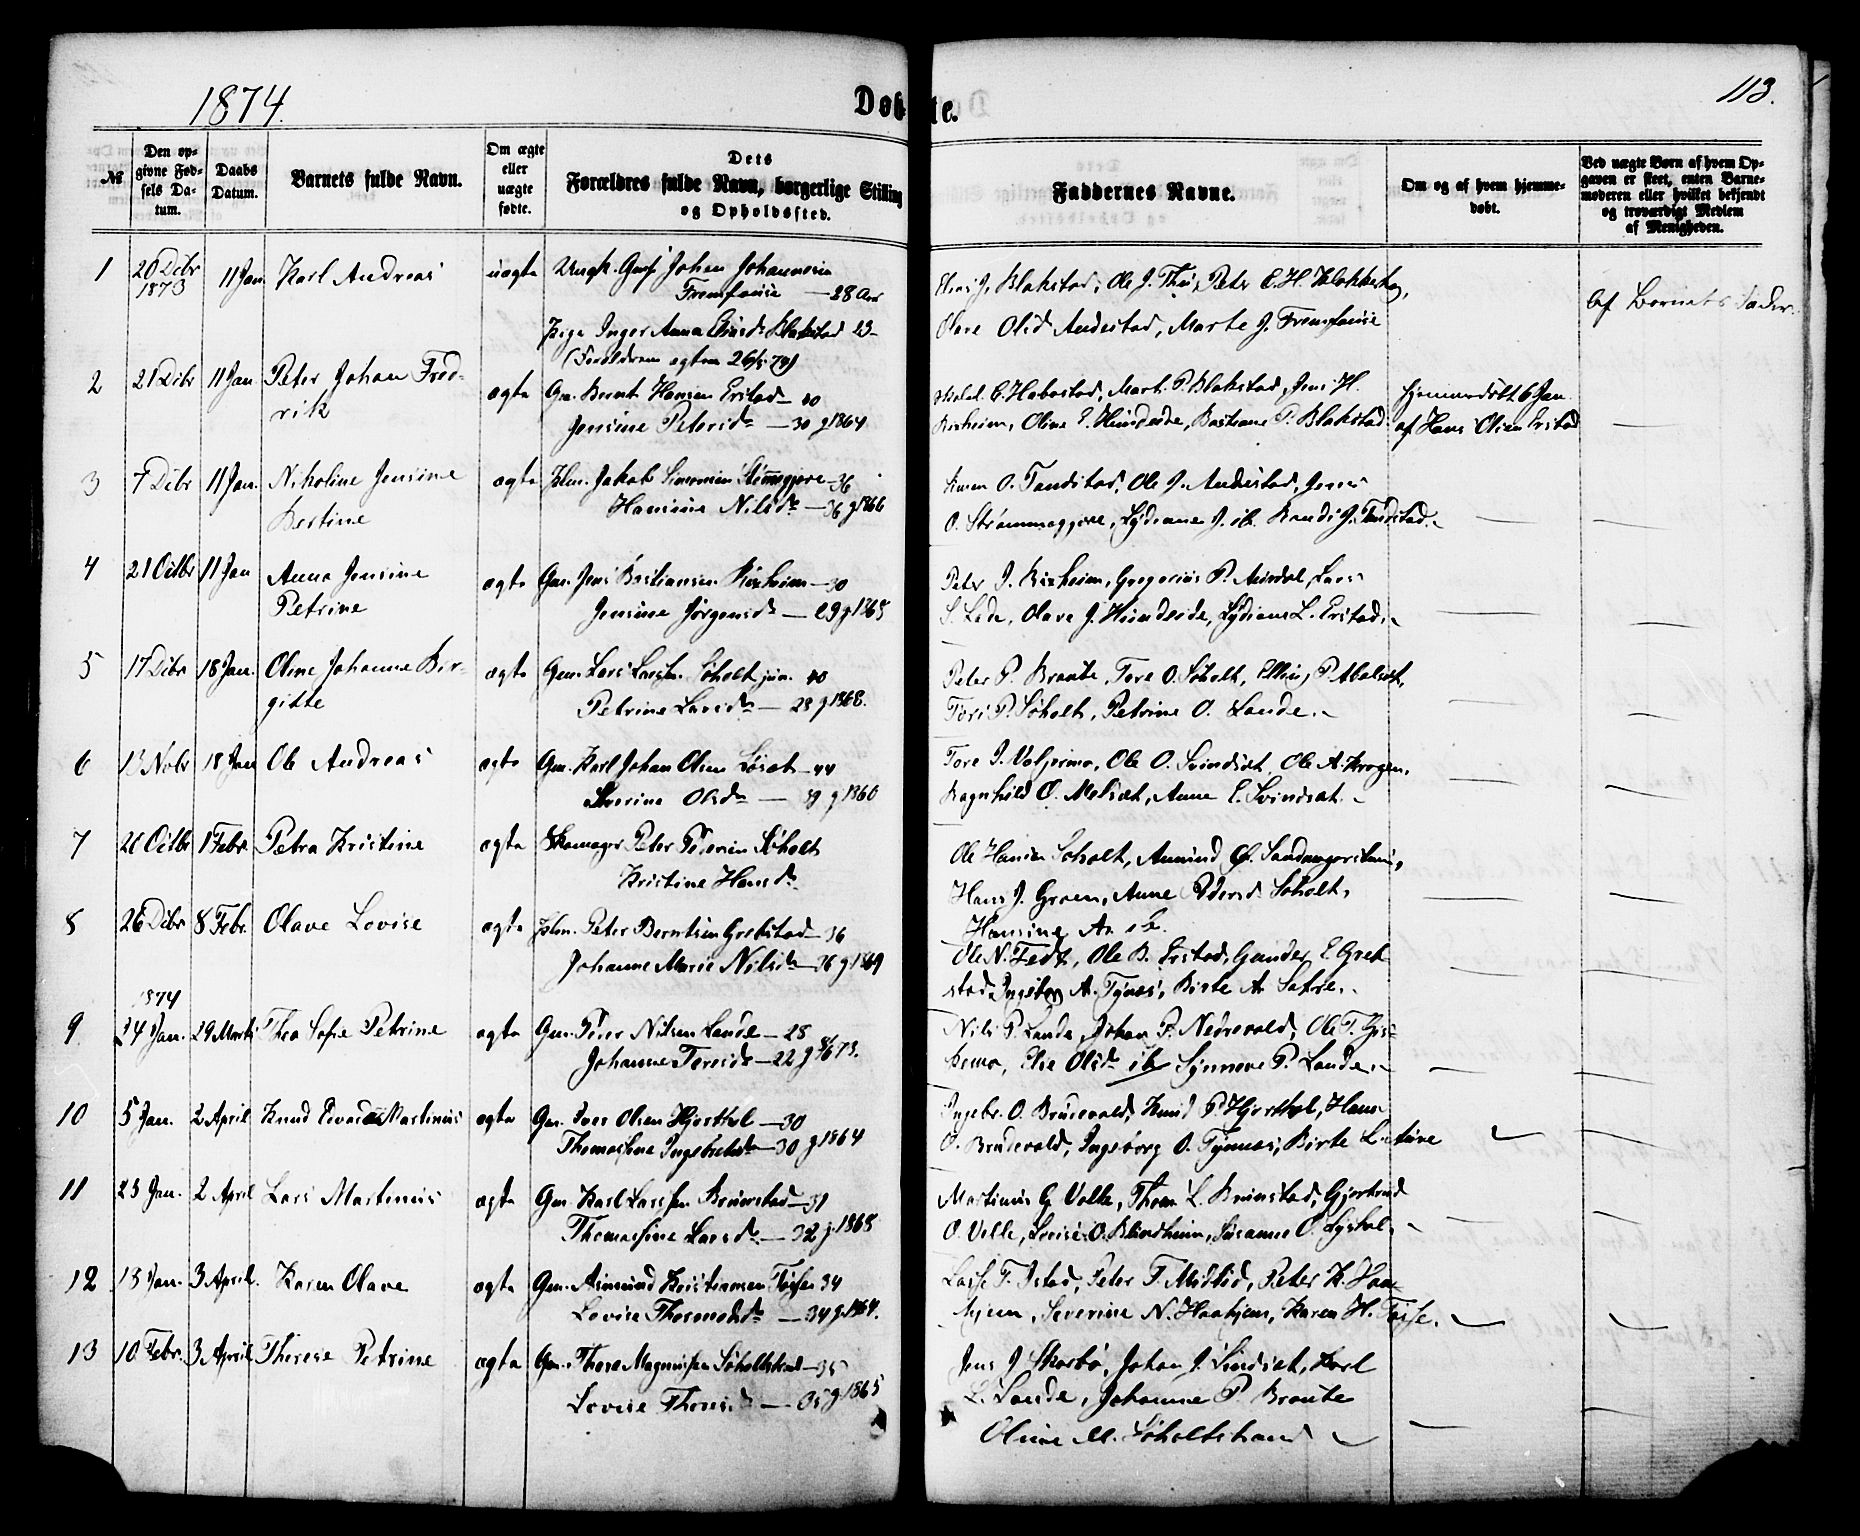 1874.
Døbte.
113.
№
Den opgivne Fødsels Datum.
Daabs Datum.
Barnets fulde Navn.
Om ægte eller uægte fødte.
Dets Forældres fulde Navn, borgerlige Stilling og Opholdssted.
Faddernes Navne.
Om og af hvem hjemmedøbt.
Ved uægte Børn af hvem Opgaven er skeet, enten Barnemoderen eller hvilket bekjendt og troværdigt Medlem af Menigheden.
1 20 Dcbr 1873 11 Jan Karl Andreas uægte Ungk. Johan Johannesen
28 Aar
Pige Inger Anna Blakstad 23
(Foreldrene
Blakstad, Ole J. Peter
Olave Olsd Andestad, Marte J.
Af Barnets Fader.
2 21 Dcbr 11 Jan Peter Johan Fred-
rik
ægte Gm. Bernt Hansen Erstad 40
Jensine Petersdr 30 g 1864
Mart. P. Blakstad, Jens H.
Rixheim, Oline E. Hundeide, Bastiane P. Blakstad
hjemmedøbt 6 Jan.
af Hans Olsen Erstad
3 7 Dcbr 11 Jan. Nikoline Jensine
Bertine
ægte Jakob Simonsen 36
Hansine Nilsdr 36 g 1866
O. Tandstad, Ole J. Andestad, Jens
O. Lydianne J. ib. Randi J. Tandstad.
4 21 Octbr 11 Jan Anna Jensine
Petrine
ægte Gm. Jens Bastiansen Rixheim 30
Jensine Jørgensdr 29 g 1865
Peter J. Rixheim, Gregorius P. Aursdal, Lars
S. Lade, Olave J. Hundeide, Lydianna L. Erstad.
5 17 Dcbr 18 Jan. Oline Johanne Bir-
gitte
ægte Gm. Lars Larsen Søholt jun. 40
Petrine Larsdr 28 g 1868.
Peter P. Braute, Tore O. Søholt, Elling P. Abelset,
P. Søholt, Petrine O. Lande.
6 13 Nobr 18 Jan Ole Andreas ægte Gm. Karl Johan Olsen 44
Severine Olsdr g 1860
Tore J. Ole O. Svindset, Ole A. Krogen,
Ragnhild O. Melset, Anne E. Svindset.
7 26 Octbr 1 Febr. Petra Kristine ægte Skomager Peter Petersen Søholt
Kristine Hansdr
Ole Hansen Søholt, Amund
Hans J. Groen, Anne Pedersd Søholt,
Hansine
8 26 Dcbr 8 Febr. Olave Lovise ægte Peter Berntsen Grebstad 36
Johanne Marie Nilsdr 36 g 1869
Ole N. Fedt, Ole B. Erstad, Gunder E Greb-
stad, Ingeborg A. Tynes, Birte A. Sætre.
1874
9 24 Jan. 29 Marts Thea Sofie Petrine ægte Gm. Peter Nilsen Lande 28
Johanne Toresdr 22 g 73.
Nils P. Lande, Johan P. Nedrevold, Ole T.
Else Olsdr ib Synnøve P. Lande.
10 5 Jan. 2 April Knud Edvard Martinus ægte Gm. Iver Olsen Hjorthol 30
Thomasine Ingebrdr 30 g 1864
Ingebr. O. Brudevold, Knud P. Hjorthol, Hans
O. Brudevold, Ingeborg O. Tynnes, Birte
11 23 Jan. 2 April Lars Martinus ægte Gm. Karl Larssen Brunstad 31
Thomasine Larsdr 32 g 1868
Martinus G. Velle, Thom L. Brunstad, Gjertrud
O. Velle, Lovise O. Blindheim, Susanne O. Lyshol.
12 13 Jan. 3 April Karen Olave ægte Gm. Amund Kristiansen 34
Lovise Thormodsdr 34 g 1864.
Lasse T. Istad, Peter T. Midtlid, Peter K. Haa-
hjem, Severine N. Haahjem, Karen H.
13 10 Febr. 3 April Therese Petrine ægte Gm. Thore Magnussen Søholtstrand 35
Lovise Thoresdr 35 g 1865
Jens J. Skorbø, Johan J. Lindset, Karl
L. Lande, Johanne P. Braute
Oline M. Søholtstrand